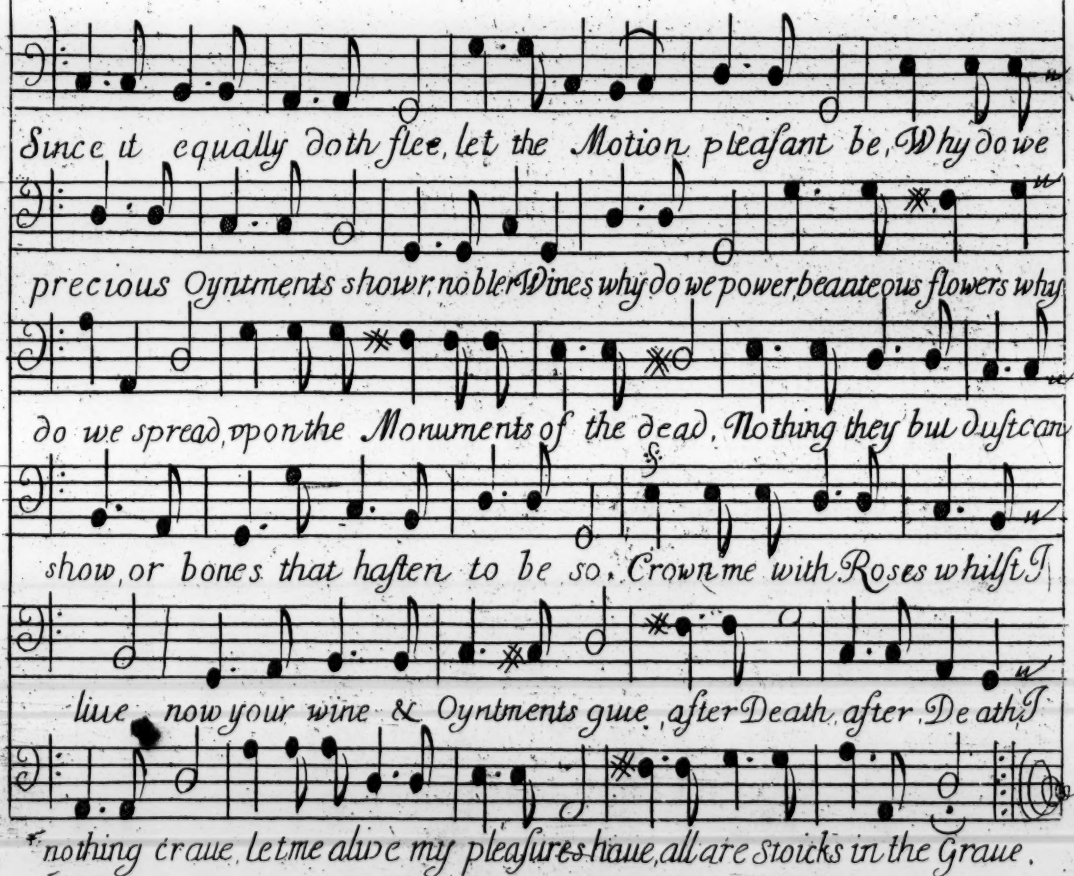 Since it equally doth flee, let the Motion pleaſant be, Why do we
precious Oyntments showr, nobler Wines why do we power, beauteous flowers why
do we spread, vpon the Monuments of the dead, Nothing they but duſt can
show, or bones that haſten to be so. Crown me with Roses whilſt I
liue now your wine & Oyntments giue, after Death, after Death I
nothing craue, Let me aliue my pleaſures haue, all are Stoicks in the Graue.